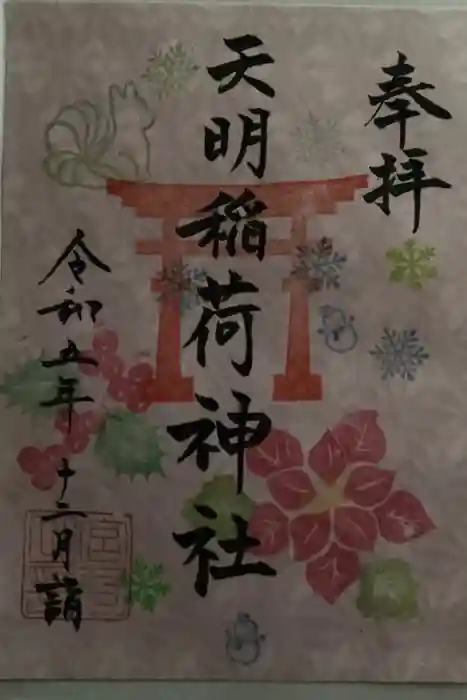 奉拝
天明稲荷神社
令和五年十二月詣